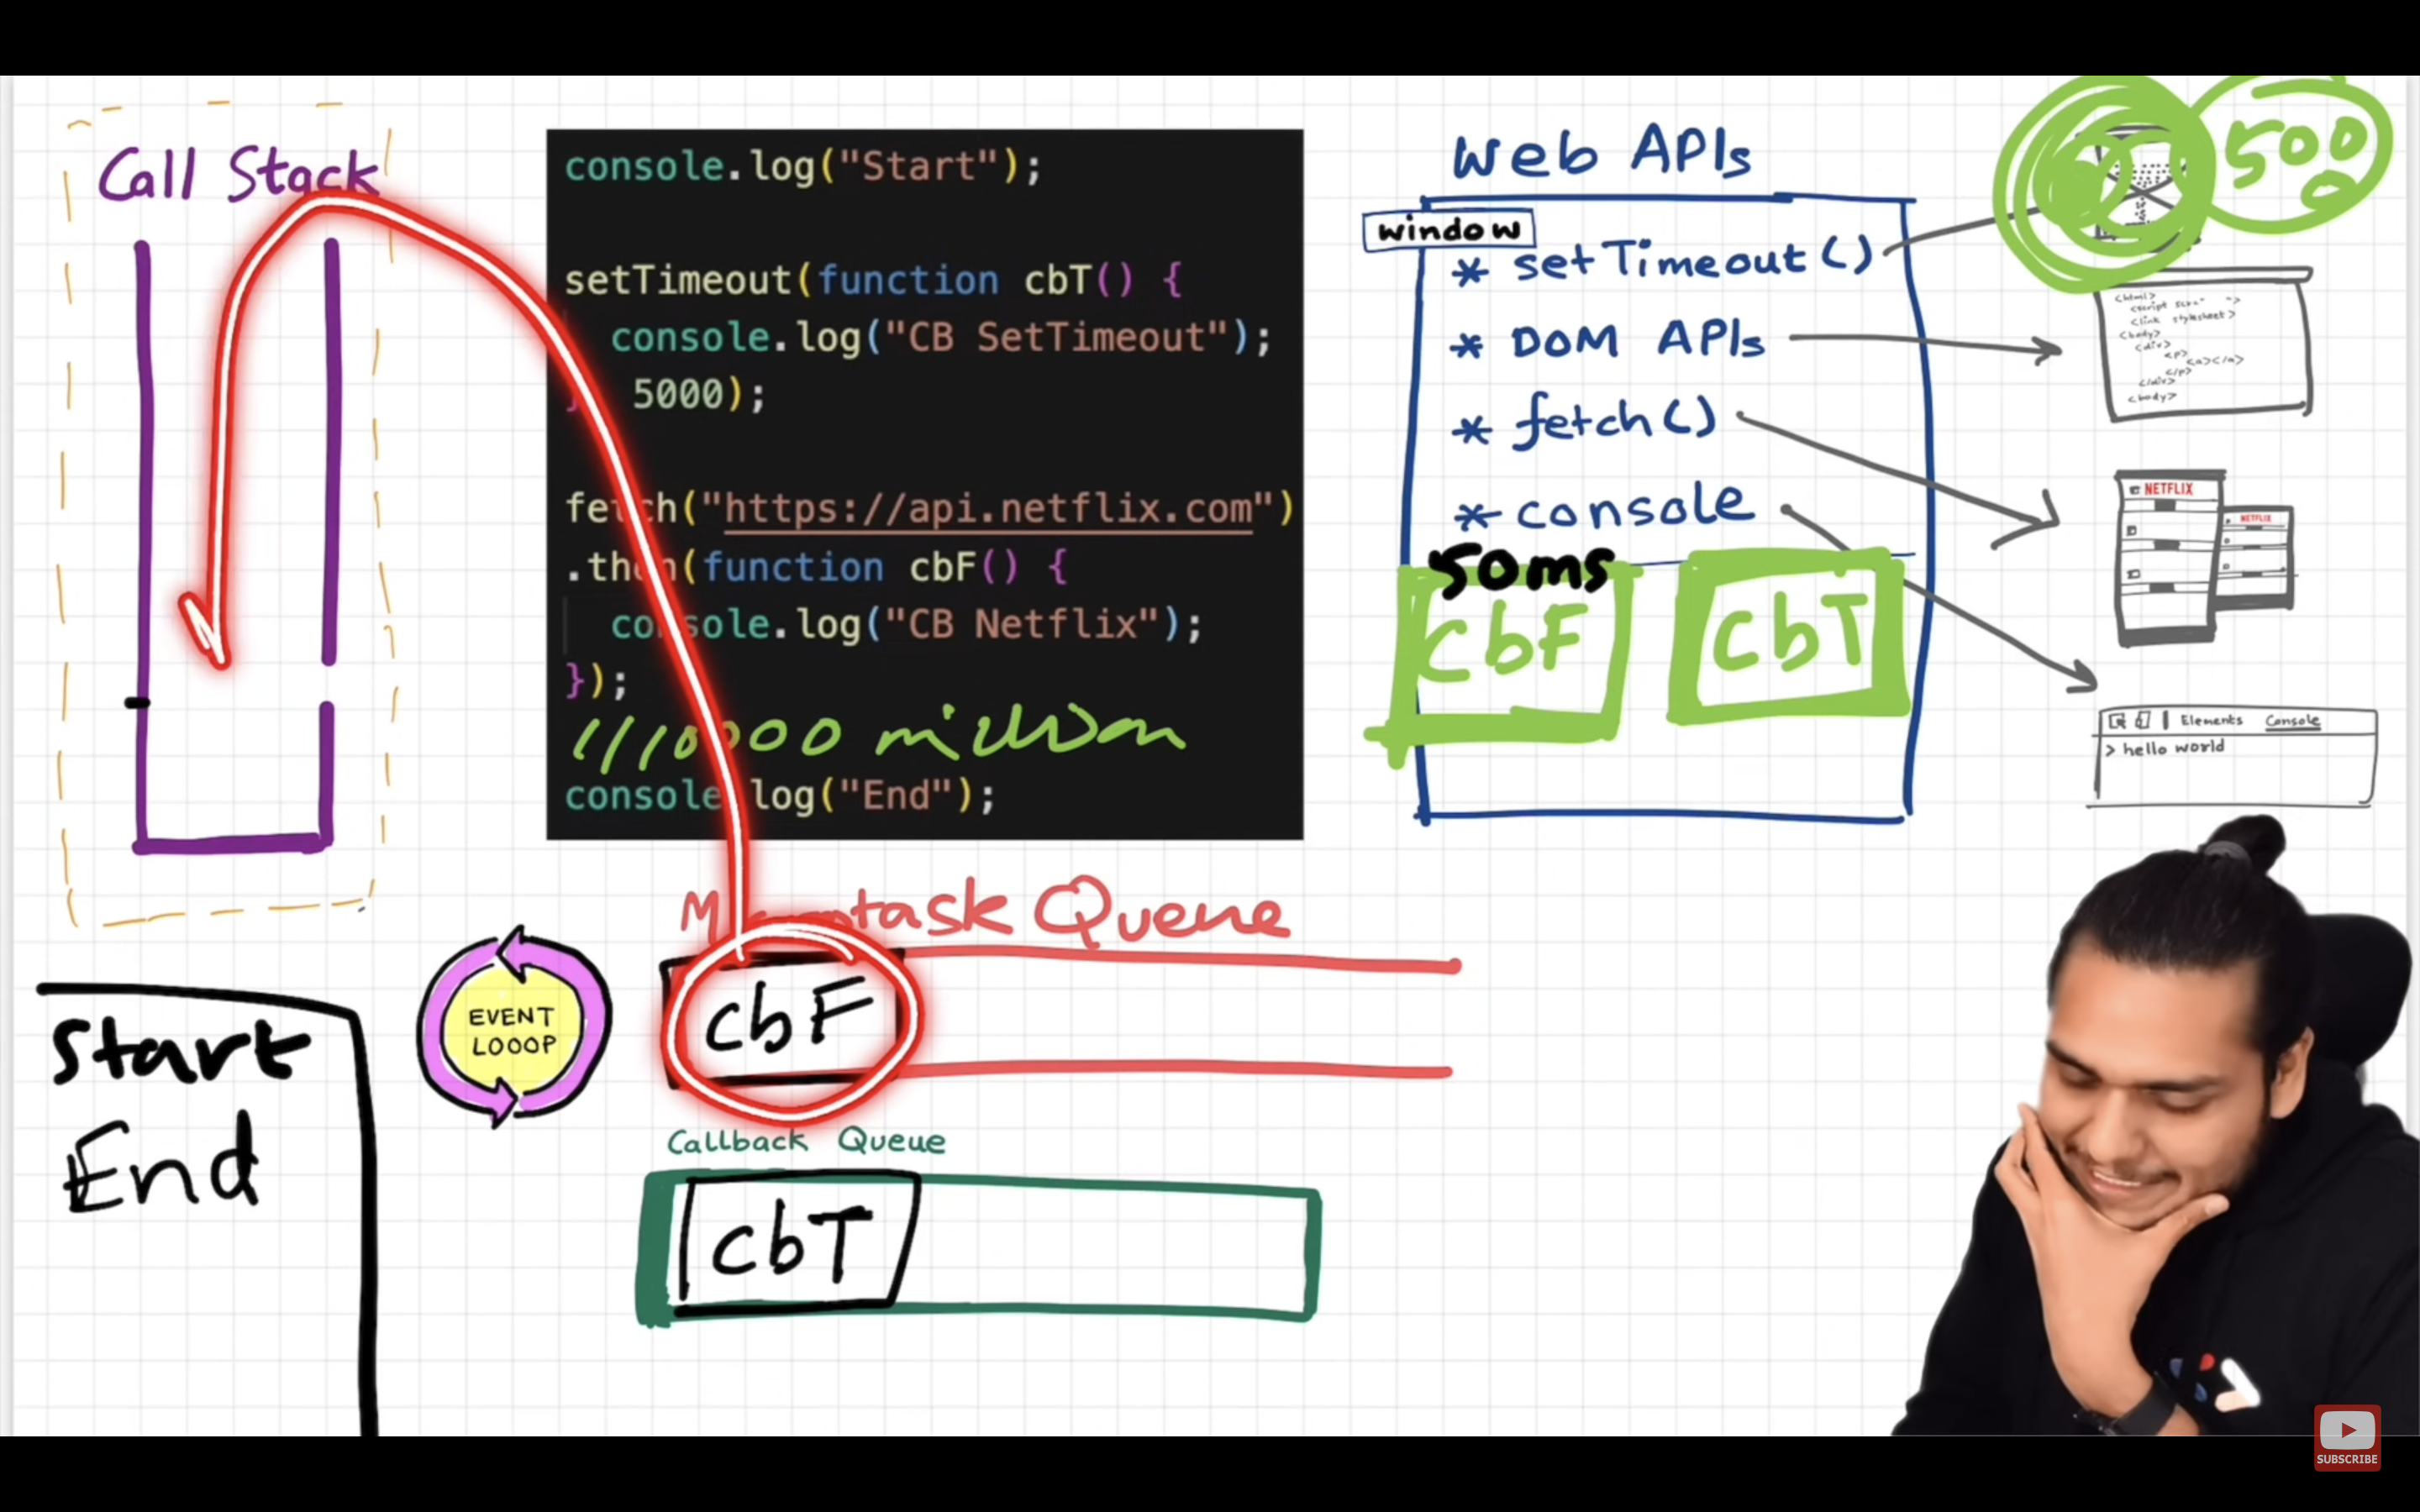 Call Stack
console.log("Start");
setTimeout(function cbT() {
console.log("CB SetTimeout");
} 5000);
fetch("https://api.netflix.com")
.then(function cbF() {
console.log("CB Netflix");
});
million
console.log("End");
Web APIs
window
* setTimeout()
* DOM APIs
* fetch()
* console
50ms
CbF
CbT
500
0
<html>
<script src=" ">
<link stylesheet>
<body>
<div>
<p>
<a></a>
</p>
</div>
<body>
NETFLIX
NETFLIX
Elements Console
> hello world
Microtask Queue
cbF
EVENT
LOOOP
Callback Queue
cbT
Start
End
SUBSCRIBE